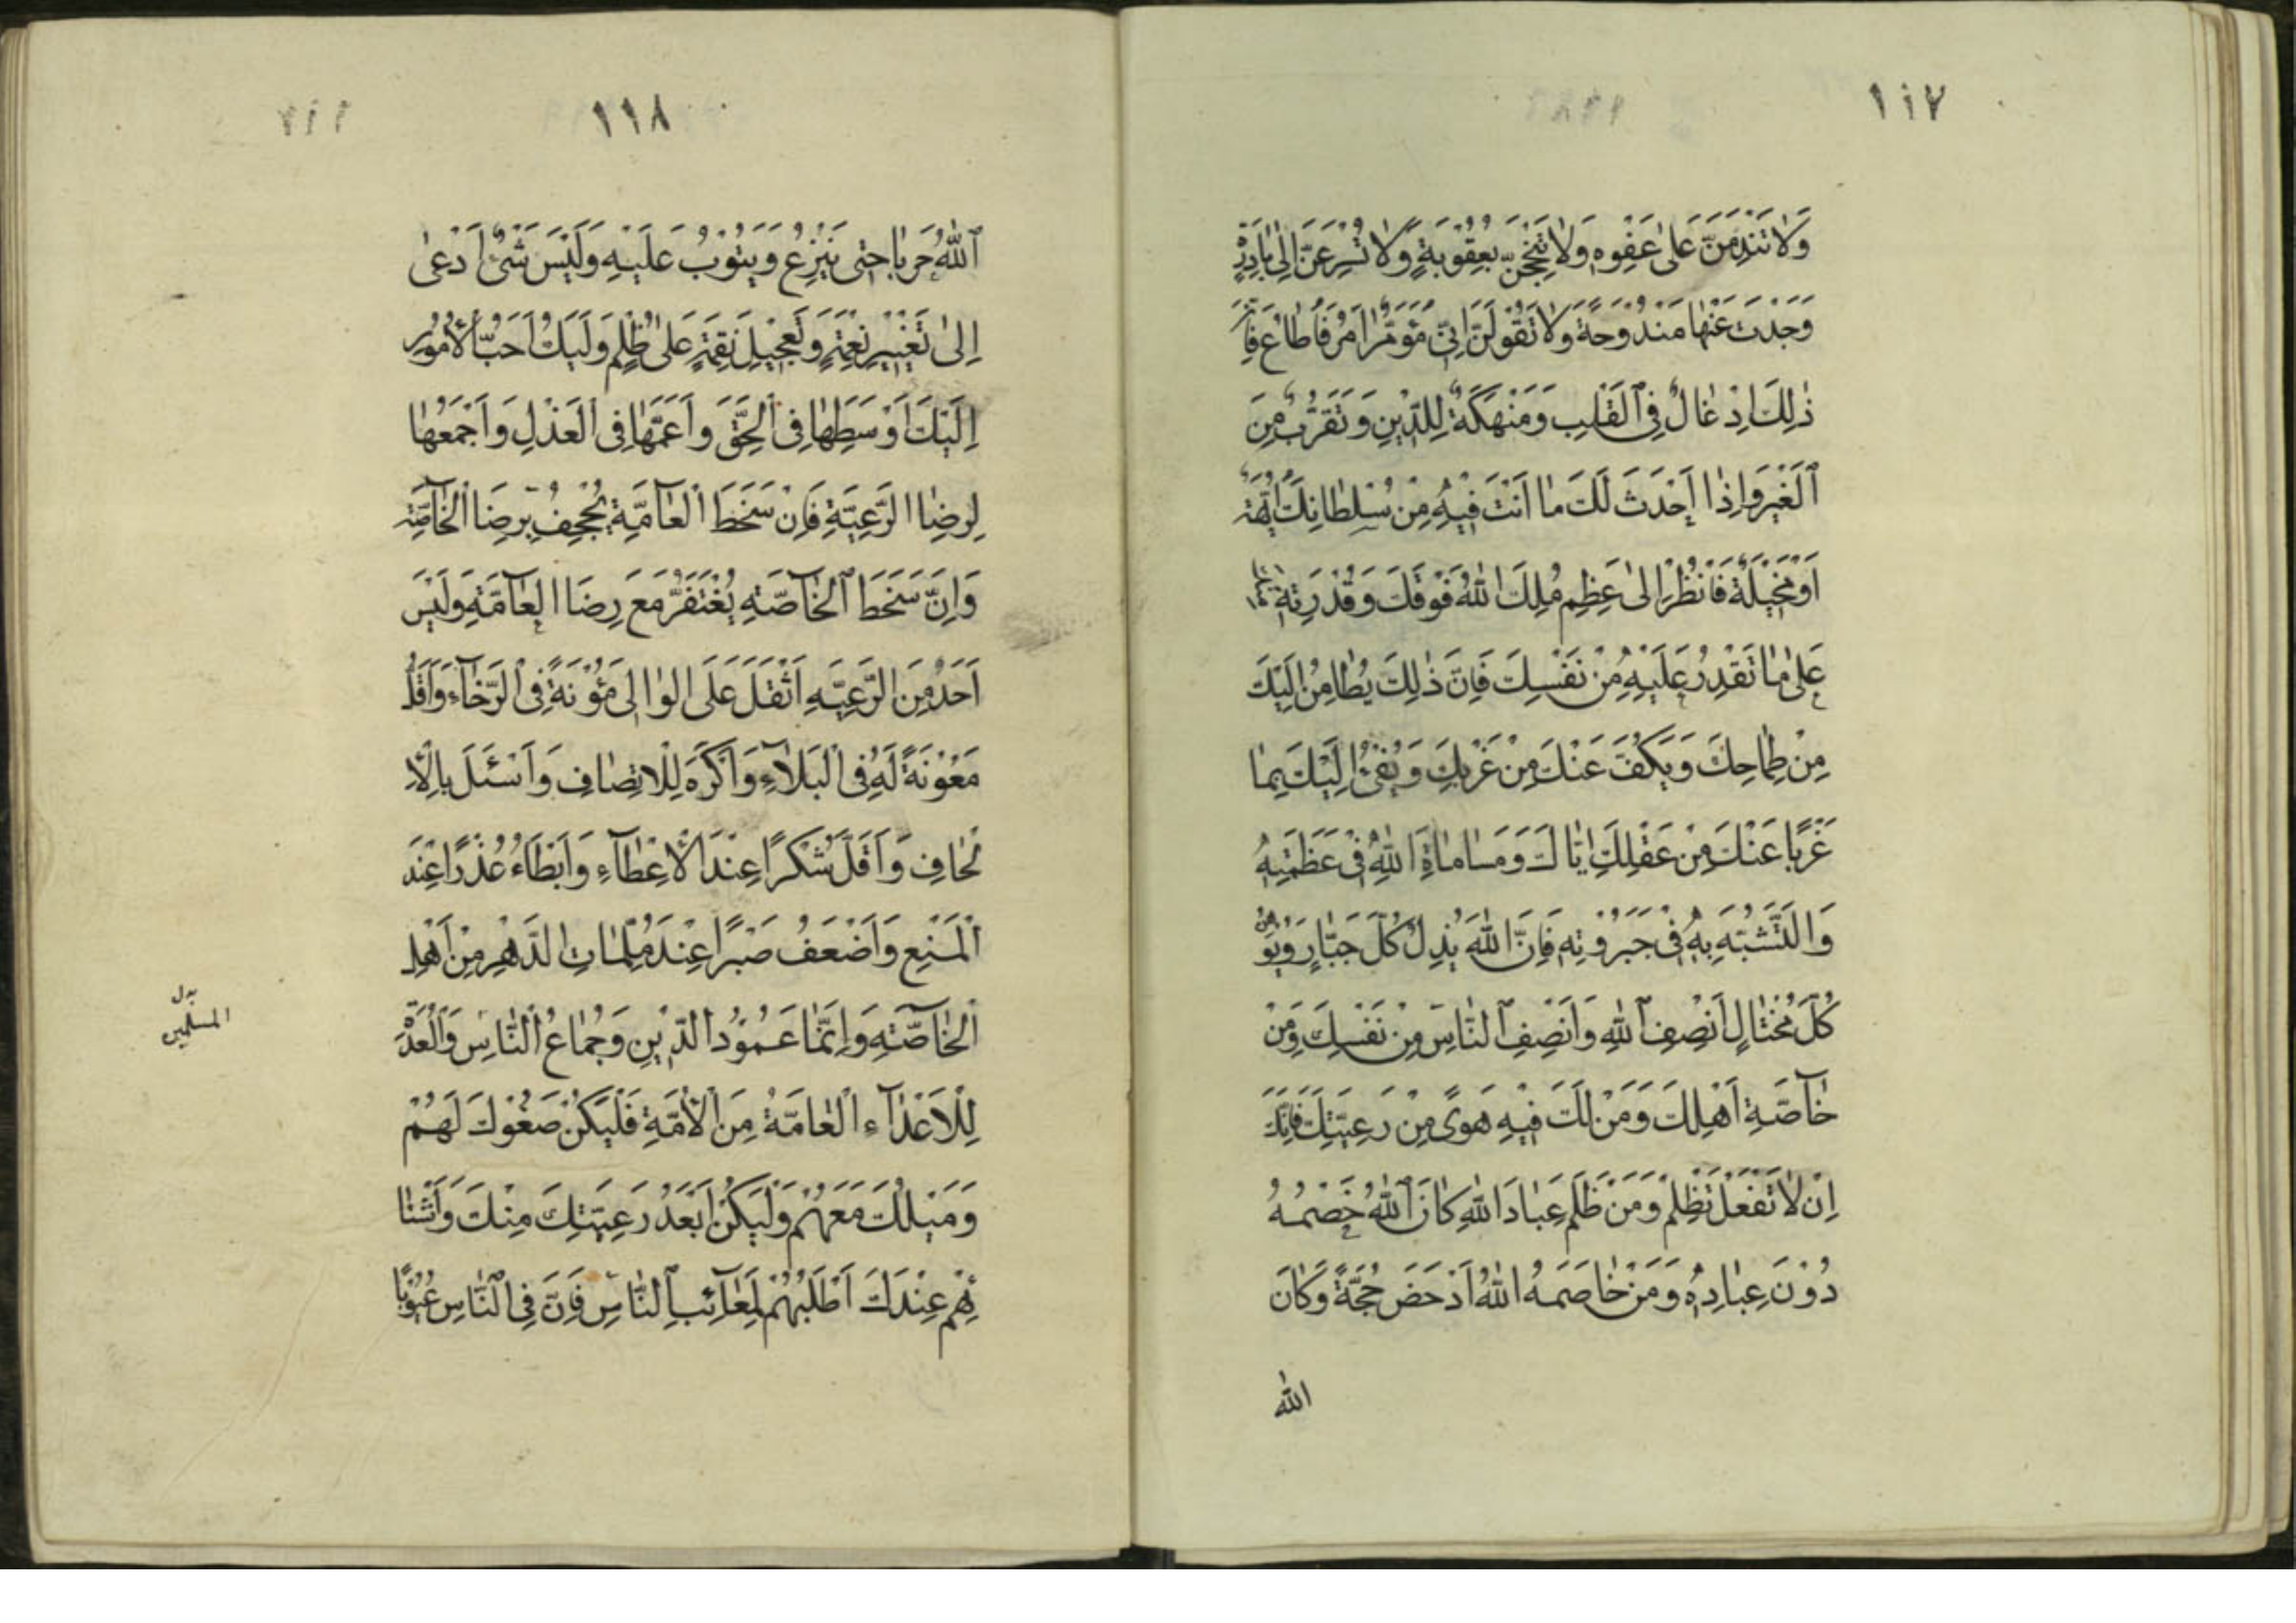 ١١٧
وَلَا تَنْدَمَنَّ عَلىٰ عَفْوِهِ وَلَا تَبْجَحَنَّ بِعُقُوبَةٍ وَلَا تُسْرِعَنَّ اِلىٰ بَادِرَةٍ
وَجَدْتَ عَنْهَا مَنْدُوحَةً وَلَا تَقُولَنَّ اِنِّى مُؤَمَّرٌ اٰمُرُ فَاُطَاعُ فَاِنَّ
ذٰلِكَ اِدْغَالٌ فِى الْقَلْبِ وَمَنْهَكَةٌ لِلدِّينِ وَتَقَرُّبٌ مِنَ
الْغِيَرِ وَاِذَا اَحْدَثَ لَكَ مَا اَنْتَ فِيْهِ مِنْ سُلْطَانِكَ اُبَّهَةً
اَوْ مَخِيْلَةً فَانْظُرْ اِلىٰ عَظِمِ مُلْكِ اللّٰهِ فَوْقَكَ وَقُدْرَتِهِ
عَلىٰ مَا تَقْدِرُ عَلَيْهِ مِنْ نَفْسِكَ فَاِنَّ ذٰلِكَ يُطَامِنُ اِلَيْكَ
مِنْ طِمَاحِكَ وَيَكُفُّ عَنْكَ مِنْ غَرْبِكَ وَيَفِىْءُ اِلَيْكَ بِمَا
عَزَبَ عَنْكَ مِنْ عَقْلِكَ اِيَّاكَ وَمَسَامَاةَ اللّٰهِ فِى عَظَمَتِهِ
وَالتَّشَبُّهَ بِهِ فِى جَبَرُوْتِهِ فَاِنَّ اللّٰهَ يُذِلُّ كُلَّ جَبَّارٍ وَيُهِيْنُ
كُلَّ مُخْتَالٍ اَنْصِفِ اللّٰهِ وَاَنْصِفِ النَّاسَ مِنْ نَفْسِكَ وَمِنْ
خَاصَّةِ اَهْلِكَ وَمَنْ لَكَ فِيْهِ هَوًى مِنْ رَعِيَّتِكَ فَاِنَّكَ
اِنْ لَا تَفْعَلْ تَظْلِمْ وَمَنْ ظَلَمَ عِبَادَ اللّٰهِ كَانَ اللّٰهُ خَصْمَهُ
دُوْنَ عِبَادِهِ وَمَنْ خَاصَمَهُ اللّٰهُ اَدْحَضَ حُجَّةً وَكَانَ
اللّٰه
١١٨
اللّٰهُ حَرْبًا حَتّٰى يَنْزِعَ وَيَتُوْبَ عَلَيْهِ وَلَيْسَ شَىْءٌ اَدْعىٰ
اِلىٰ تَغْيِيْرِ نِعْمَةٍ وَتَعْجِيْلِ نِقْمَةٍ عَلىٰ ظُلْمٍ وَلْيَكُ اَحَبُّ الْاُمُوْرِ
اِلَيْكَ اَوْسَطِهَا فِى الْحَقِّ وَاَعَمَّهَا فِى الْعَدْلِ وَاَجْمَعُهَا
لِرِضَا الرَّعِيَّةِ فَاِنَّ سَخَطَ الْعَامَّةِ يُجْحِفُ بِرِضَا الْخَاصَّةِ
وَاِنَّ سَخَطَ الْخَاصَّةِ يُغْتَفَرُ مَعَ رِضَا الْعَامَّةِ وَلَيْسَ
اَحَدٌ مِنَ الرَّعِيَّةِ اَثْقَلَ عَلَى الْوَالِى مَؤُنَةً فِى الرَّخَاءِ وَاَقَلَّ
مَعُوْنَةً لَهُ فِى الْبَلَاءِ وَاَكْرَهَ لِلْاِنْصَافِ وَاَسْئَلَ بِالْاِ
لْحَافِ وَاَقَلَّ شُكْرًا عِنْدَ الْاِعْطَاءِ وَاَبْطَاءُ عُذْرًا عِنْدَ
الْمَنْعِ وَاَضْعَفُ صَبْرًا عِنْدَ مُلِمَّاتِ الدَّهْرِ مِنْ اَهْلِ
الْخَاصَّةِ وَاِنَّمَا عَمُوْدُ الدِّيْنِ وَجُمَاعُ النَّاسِ وَالْعُدَّةُ
بدل
المسلمين
لِلْاَعْدَاءِ الْعَامَّةُ مِنَ الْاُمَّةِ فَلْيَكُنْ صَغْوُكَ لَهُمْ
وَمَيْلُكَ مَعَهُمْ وَلْيَكُنْ اَبْعَدُ رَعِيَّتِكَ مِنْكَ وَاَشْنَا
ئُهُمْ عِنْدَكَ اَطْلَبُهُمْ لِمَعَآئِبِ النَّاسِ فَاِنَّ فِى النَّاسِ عُيُوْبًا